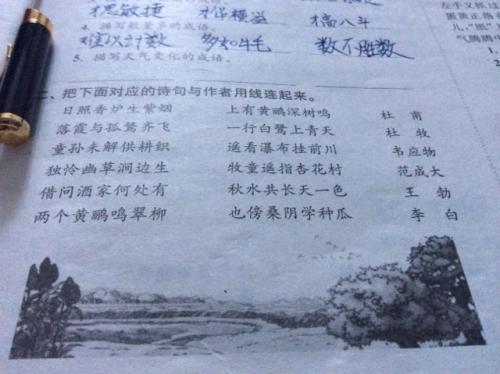 思敏捷 才华横溢 才高八斗
4. 描写数量多的成语。
难以计数 多如牛毛 数不胜数
5. 描写天气变化的成语。
、把下面对应的诗句与作者用线连起来。
日照香炉生紫烟 上有黄鹂深树鸣 杜 甫
落霞与孤鹜齐飞 一行白鹭上青天 杜 牧
童孙未解供耕织 遥看瀑布挂前川 韦应物
独怜幽草涧边生 牧童遥指杏花村 范成大
借问酒家何处有 秋水共长天一色 王 勃
两个黄鹂鸣翠柳 也傍桑阴学种瓜 李 白
左手又抓
蛋黄正